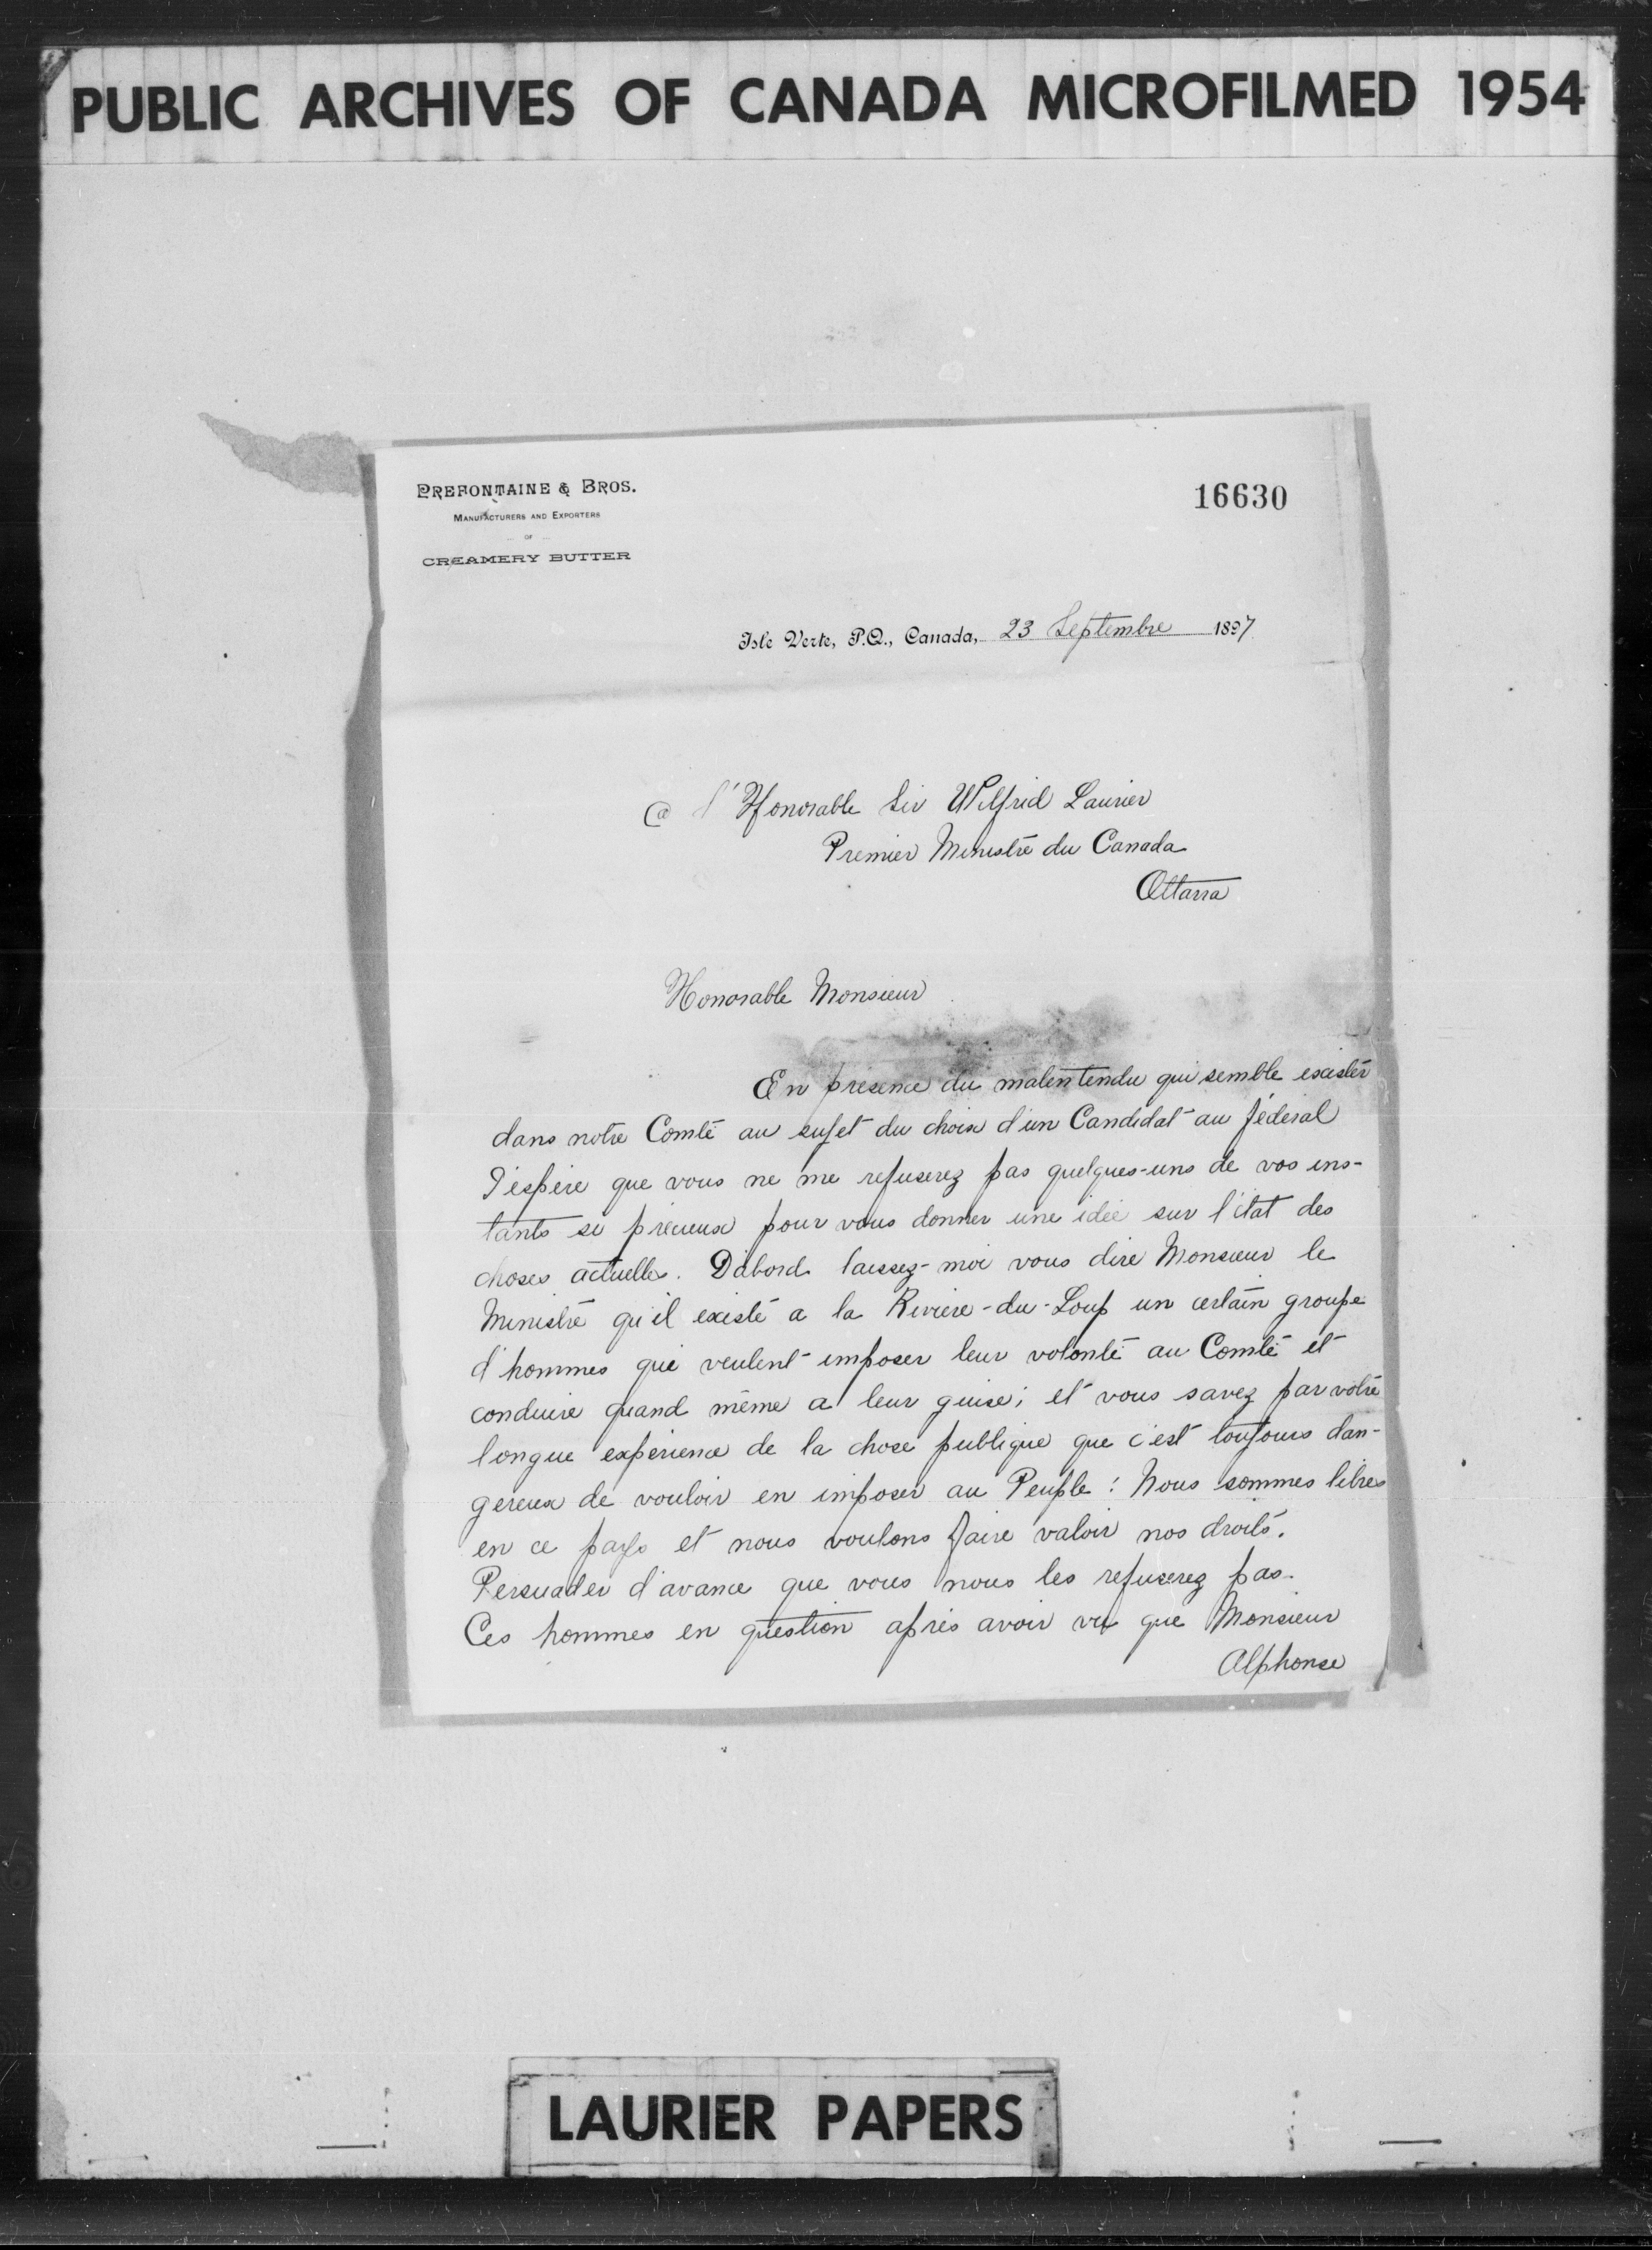 PUBLIC ARCHIVES OF CANADA MICROFILMED 1954
PREFONTAINE & BROS.
MANUFACTURERS AND EXPORTERS
OF
CREAMERY BUTTER
16630
Isle Verte, P.Q., Canada, 23 Septembre 1897
@ l'Honorable Sir Wilfrid Laurier
Premier Ministre du Canada
Ottawa
Honorable Monsieur
En présence du malentendu qui semble exister
dans notre Comté au sujet du choix d'un Candidat au fédéral
J'espère que vous ne me refuserez pas quelques-uns de vos ins-
tants si précieux pour vous donner une idée sur l'état des
choses actuelles. D'abord laissez-moi vous dire Monsieur le
Ministre qu'il existe a la Rivière-du-Loup un certain groupe
d'hommes qui veulent imposer leur volonté au Comté et
conduire quand même a leur guise; et vous savez par votre
longue expérience de la chose publique que c'est toujours dan-
gereux de vouloir en imposer au Peuple: Nous sommes libres
en ce pays et nous voulons faire valoir nos droits.
Persuader d'avance que vous nous les refuserez pas.
Ces hommes en question après avoir vu que Monsieur
Alphonse
LAURIER PAPERS